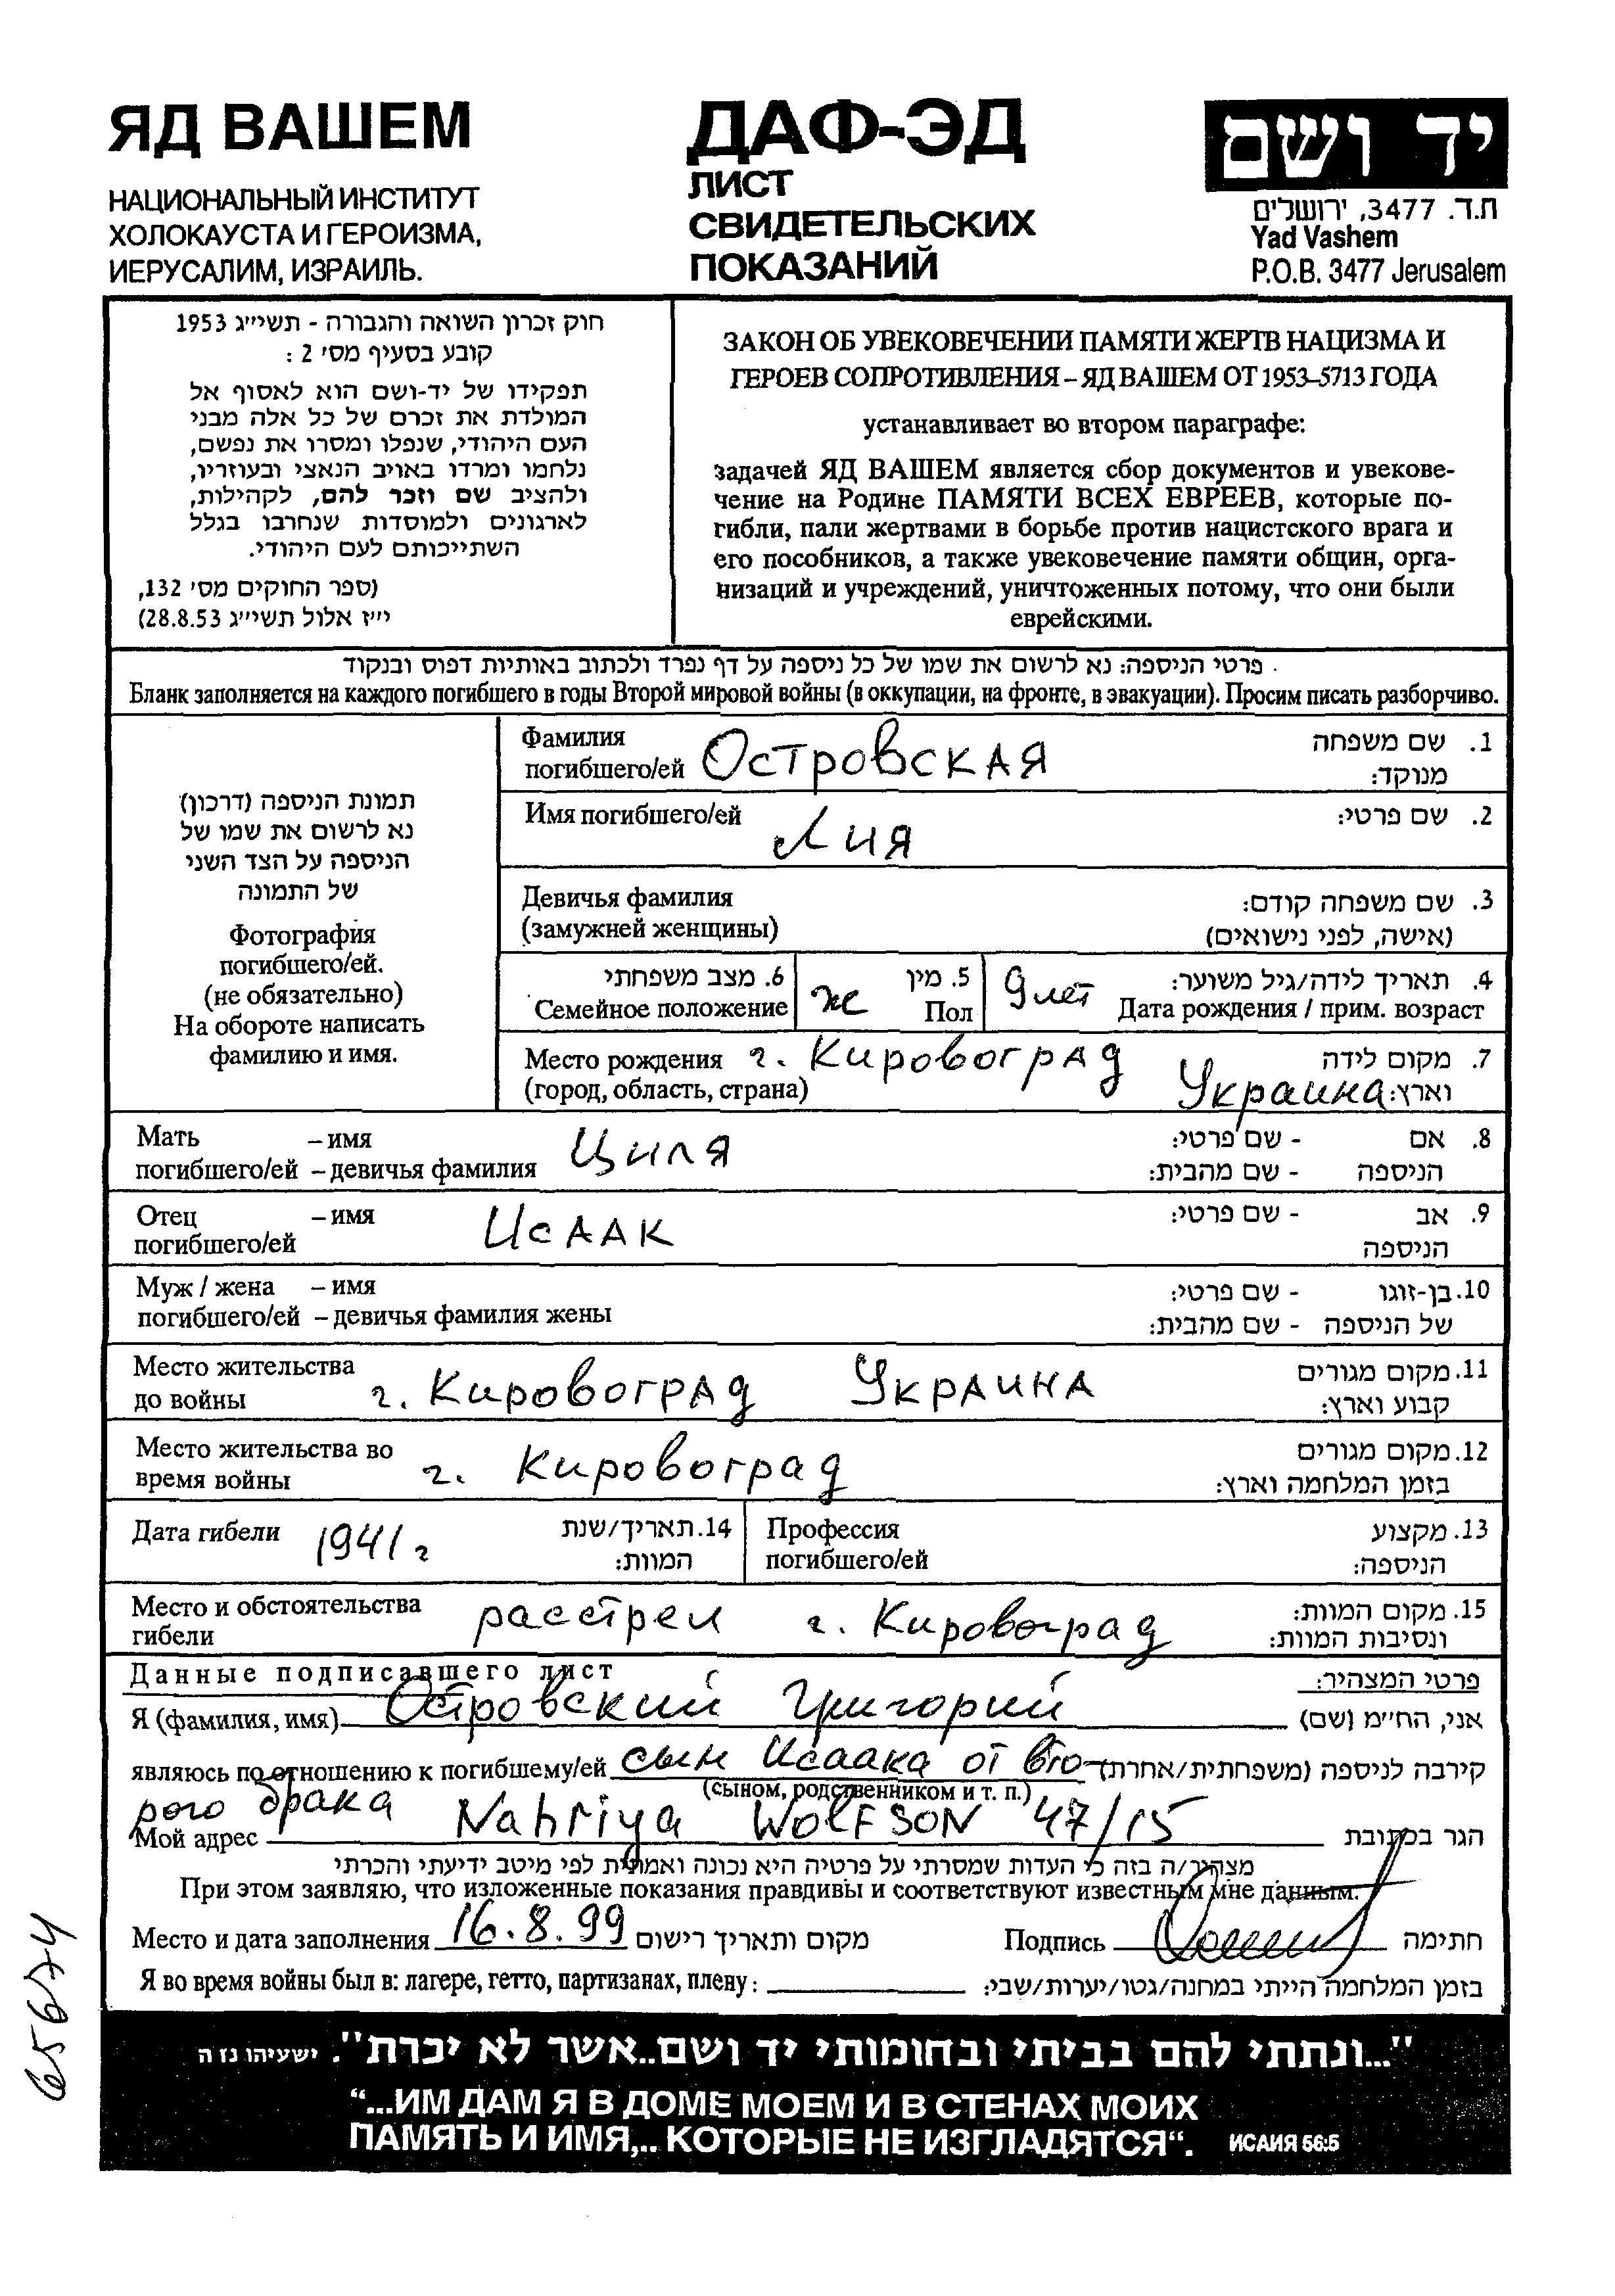 ЯД ВАШЕМ
НАЦИОНАЛЬНЫЙ ИНСТИТУТ
ХОЛОКАУСТА И ГЕРОИЗМА,
ИЕРУСАЛИМ, ИЗРАИЛЬ.
ДАФ-ЭД
ЛИСТ
СВИДЕТЕЛЬСКИХ
ПОКАЗАНИЙ
יד ושם
ת.ד. 3477, ירושלים
Yad Vashem
P.O.B. 3477 Jerusalem
חוק זכרון השואה והגבורה - תשי״ג 1953
קובע בסעיף מס׳ 2 :
תפקידו של יד-ושם הוא לאסוף אל
המולדת את זכרם של כל אלה מבני
העם היהודי, שנפלו ומסרו את נפשם,
נלחמו ומרדו באויב הנאצי ובעוזריו,
ולהציב שם וזכר להם, לקהילות,
לארגונים ולמוסדות שנחרבו בגלל
השתייכותם לעם היהודי.
(ספר החוקים מס׳ 132,
י״ז אלול תשי״ג 28.8.53)
ЗАКОН ОБ УВЕКОВЕЧЕНИИ ПАМЯТИ ЖЕРТВ НАЦИЗМА И
ГЕРОЕВ СОПРОТИВЛЕНИЯ – ЯД ВАШЕМ ОТ 1953–5713 ГОДА
устанавливает во втором параграфе:
задачей ЯД ВАШЕМ является сбор документов и увекове-
чение на Родине ПАМЯТИ ВСЕХ ЕВРЕЕВ, которые по-
гибли, пали жертвами в борьбе против нацистского врага и
его пособников, а также увековечение памяти общин, орга-
низаций и учреждений, уничтоженных потому, что они были
еврейскими.
פרטי הניספה: נא לרשום את שמו של כל ניספה על דף נפרד ולכתוב באותיות דפוס ובנקוד
Бланк заполняется на каждого погибшего в годы Второй мировой войны (в оккупации, на фронте, в эвакуации). Просим писать разборчиво.
תמונת הניספה (דרכון)
נא לרשום את שמו של
הניספה על הצד השני
של התמונה
Фотография
погибшего/ей.
(не обязательно)
На обороте написать
фамилию и имя.
Фамилия
погибшего/ей Островская
1. שם משפחה
מנוקד:
Имя погибшего/ей Лия
2. שם פרטי:
Девичья фамилия
(замужней женщины)
3. שם משפחה קודם:
(אישה, לפני נישואים)
6. מצב משפחתי
Семейное положение
5. מין
ж Пол
4. תאריך לידה/גיל משוער:
9 лет Дата рождения / прим. возраст
Место рождения г. Кировоград Украина
(город, область, страна)
7. מקום לידה
וארץ:
Мать – имя Циля
погибшего/ей – девичья фамилия
8. אם - שם פרטי:
הניספה - שם מהבית:
Отец – имя Исаак
погибшего/ей
9. אב - שם פרטי:
הניספה
Муж / жена – имя
погибшего/ей – девичья фамилия жены
10. בן-זוגו - שם פרטי:
של הניספה - שם מהבית:
Место жительства
до войны г. Кировоград Украина
11. מקום מגורים
קבוע וארץ:
Место жительства во
время войны г. Кировоград
12. מקום מגורים
בזמן המלחמה וארץ:
Дата гибели 1941 г
14. תאריך/שנת
המוות:
Профессия
погибшего/ей
13. מקצוע
הניספה:
Место и обстоятельства
гибели расстрел г. Кировоград
15. מקום המוות:
ונסיבות המוות:
Данные подписавшего лист
פרטי המצהיר:
Я (фамилия, имя) Островский Григорий אני, הח״מ (שם)
являюсь по отношению к погибшему/ей сын Исаака от вто- קירבה לניספה (משפחתית/אחרת)
(сыном, родственником и т. п.)
рого брака
Мой адрес Nahriya Wolfson 47/15 הגר בכתובת
מצהיר/ה בזה כי העדות שמסרתי על פרטיה היא נכונה ואמתית לפי מיטב ידיעתי והכרתי
При этом заявляю, что изложенные показания правдивы и соответствуют известным мне данным.
Место и дата заполнения 16.8.99 מקום ותאריך רישום Подпись חתימה
Я во время войны был в: лагере, гетто, партизанах, плену: בזמן המלחמה הייתי במחנה/גטו/יערות/שבי:
65674
"...ונתתי להם בביתי ובחומותי יד ושם..אשר לא יכרת". ישעיהו נז ה
“...ИМ ДАМ Я В ДОМЕ МОЕМ И В СТЕНАХ МОИХ
ПАМЯТЬ И ИМЯ,.. КОТОРЫЕ НЕ ИЗГЛАДЯТСЯ“. ИСАИЯ 56:5